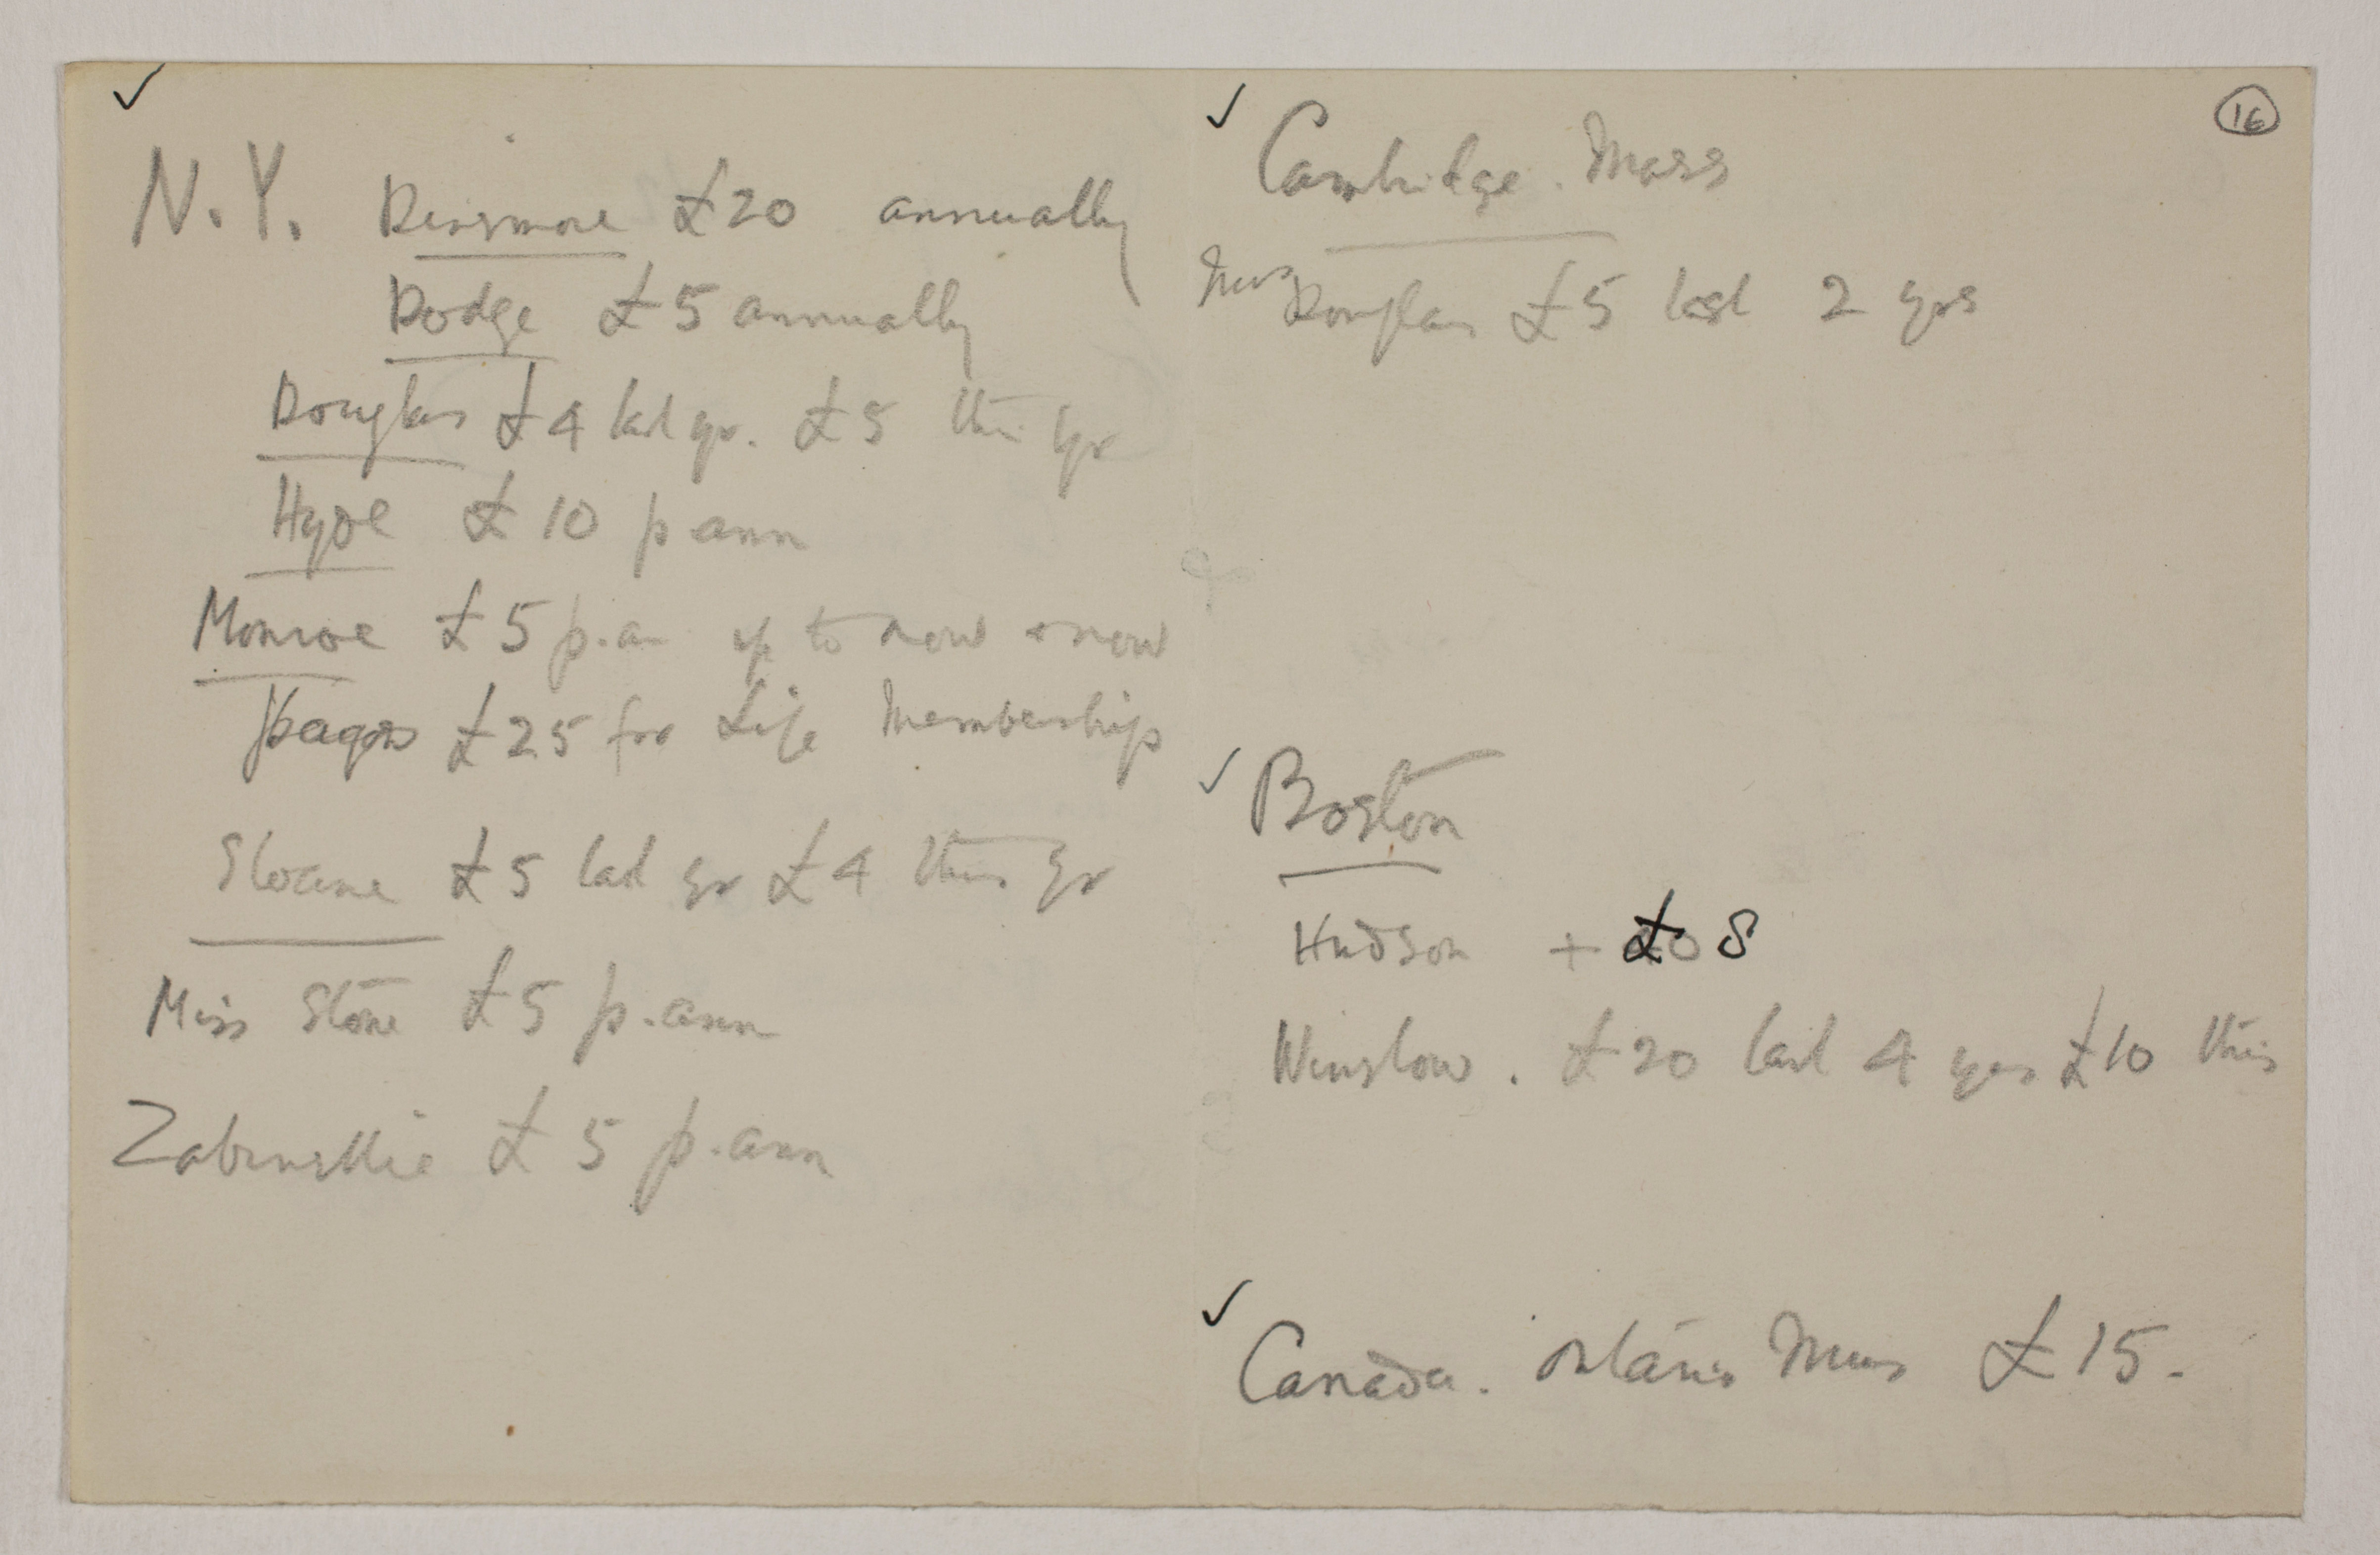 ✓
N.Y. Dinsmore £20 annually
Dodge £5 annually
Douglas £4 last yr. £5 this yr
Hyde £10 p ann
Monroe £5 p.an up to now + now
£25 for Life Membership
Sloane £5 last yr £4 this yr
Miss Stone £5 p.ann
Zabriskie £5 p.ann
16
✓ Cambridge. Mass
Mrs Douglas £5 last 2 yrs
✓ Boston
Hudson + £ 8
Winslow. £20 last 4 yrs £10 this
✓ Canada. Ontario Mus £15.